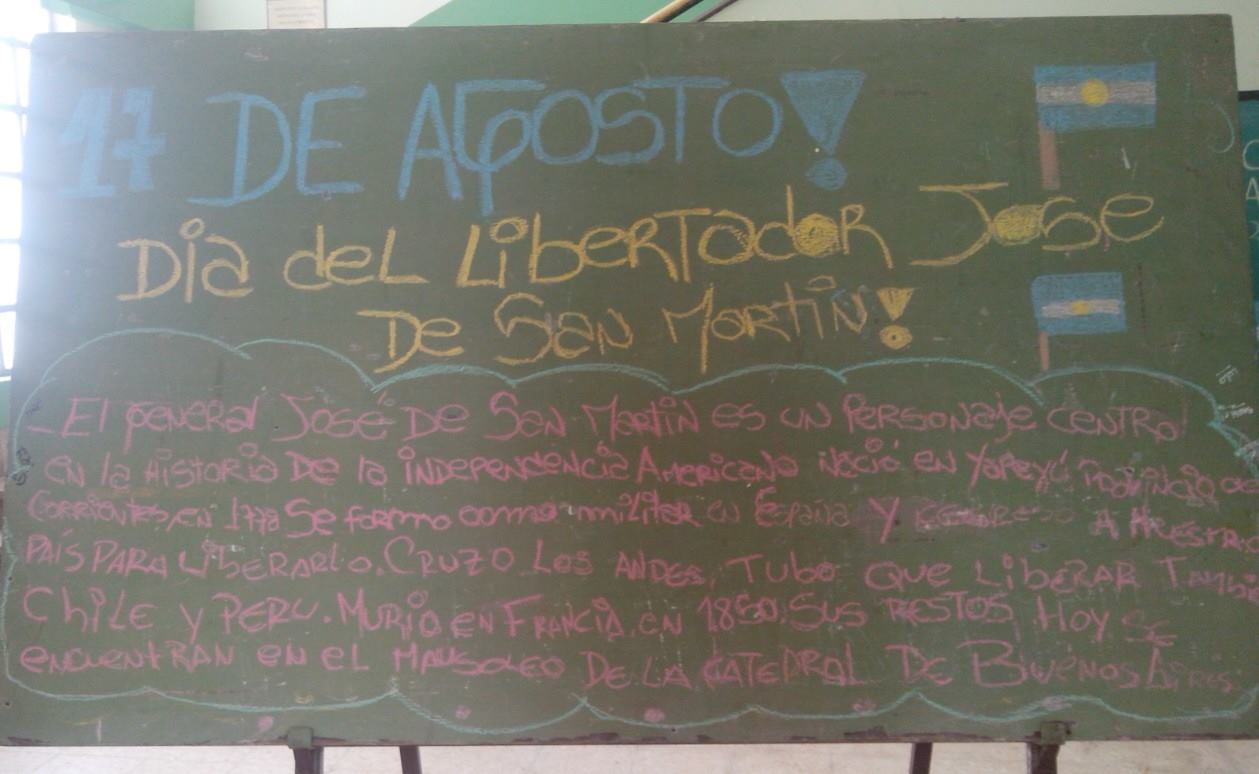 17 DE AGOSTO!
Dia del Libertador Jose
De San Martin!
- El general José De San Martin es un Personaje centro
en la Historia De la independencia Americana Nació en Yapeyú Provincia de
Corrientes, en 1778 Se formo como militar en España y regreso A Nuestro
PAÍS PARA LIBERARLO. CRUZO LOS ANDES, TUBO QUE LIBERAR Tambi
CHILE Y PERU. MURIO EN FRANCIA, en 1850. SUS RESTOS HOY SE
ENCUENTRAN EN EL MAUSOLEO DE LA CATEDRAL DE Buenos Aires